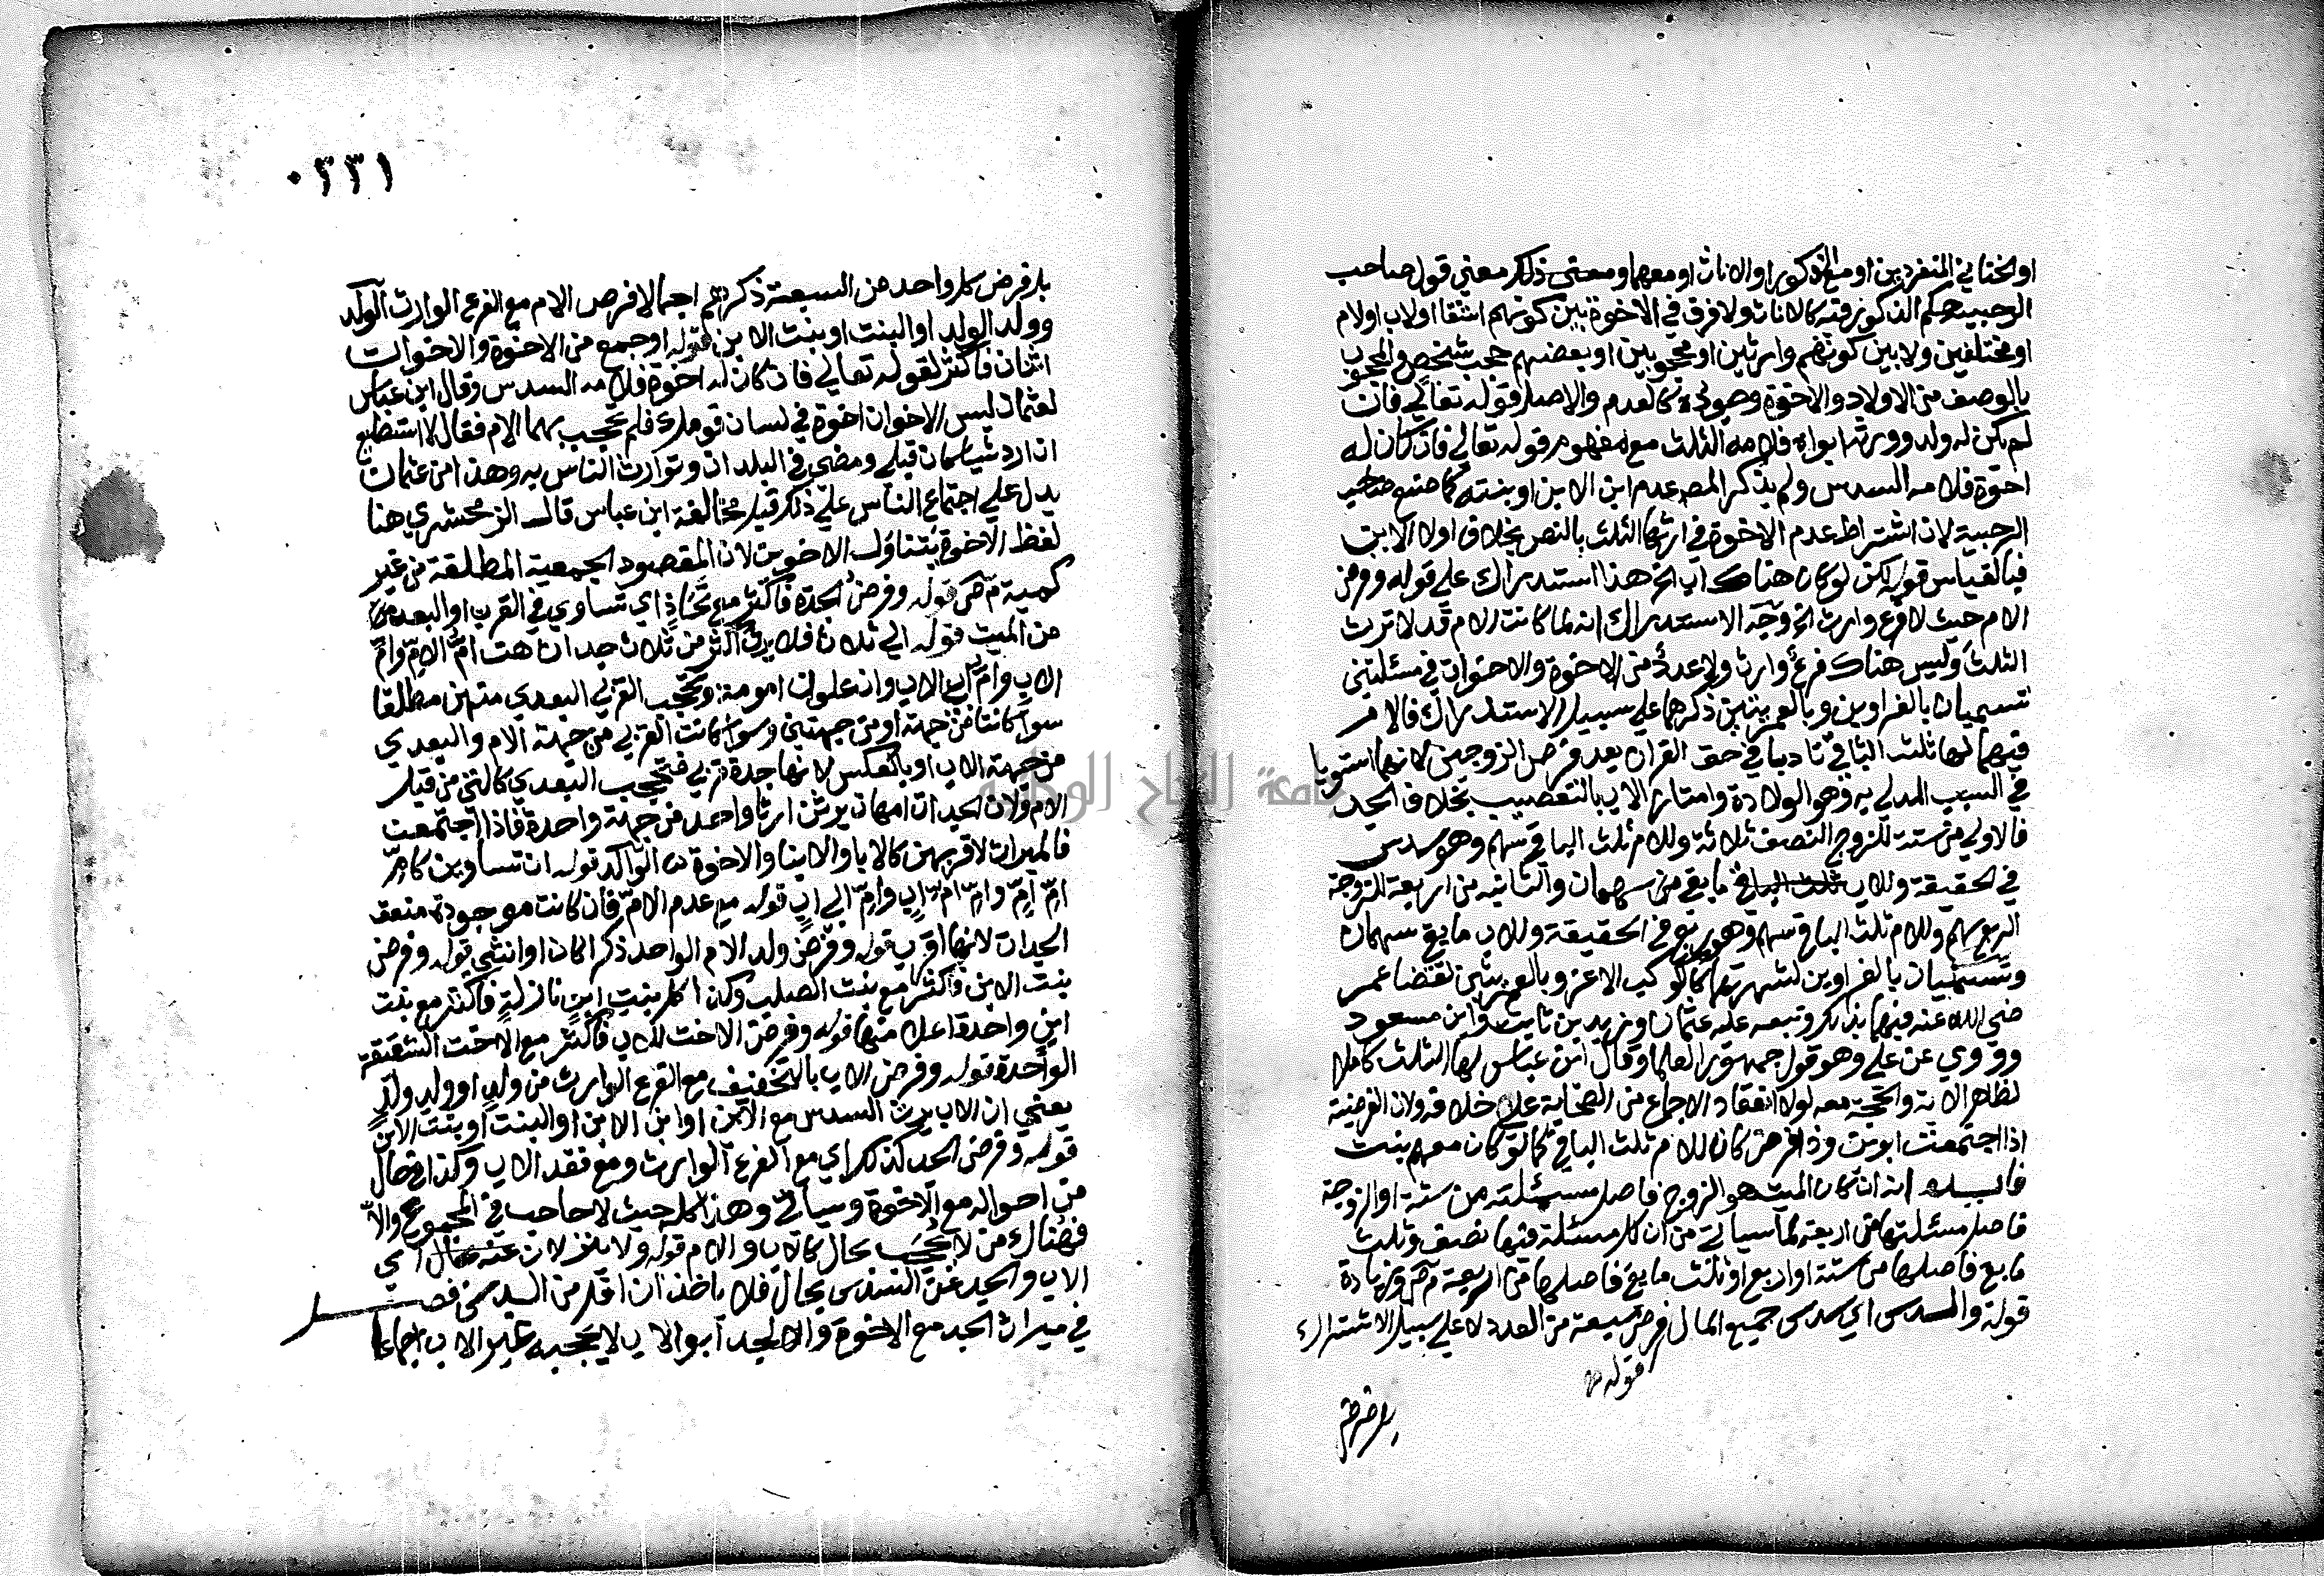 او الخناثي المنفردين او مع الذكور او الاناث او معهما ومعنى ذلك معني قول صاحب
الرحبية حكم الذكور فيه كالاناث ولا فرق في الاخوة بين كونهم اشقا او لاب او لام
او مختلفين ولا بين كونهم وارثين او محجوبين او بعضهم حجب شخص والمحجوب
بالوصف من الاولاد والاخوة وجوده كالعدم والاصل قوله تعالي فان
لم يكن له ولد وورثه ابواه فلامه الثلث مع مفهوم قوله تعالي فان كان له
اخوة فلامه السدس ولم يذكر المص عدم ابن الابن او بنته كما صنع صاحب
الرحبية لان اشتراط عدم الاخوة في ارثها الثلث بالنص بخلاف اولاد الابن
فبالقياس قوله لكن لو كان هناك اب الخ هذا استدراك علي قوله وفرض
الام حيث لا فرع وارث الخ وجه الاستدراك انه لما كانت الام قد لا ترث
الثلث وليس هناك فرع وارث ولا عدد من الاخوة والاخوات في مسئلتين
تسميان بالغراوين وبالعمريتين ذكرهما علي سبيل الاستدراك فالام
فيهما لها ثلث الباقي تادبا في حق القران بعد فرض الزوجين لانهما استويا
في السبب المدلي به وهو الولادة وامتاز الاب بالتعصيب بخلاف الجد
فالاولي من ستة للزوج النصف ثلاثة وللام ثلث الباقي سهم وهو سدس
في الحقيقة وللاب ثلث الباقي ما بقي من سهمان والثانيه من اربعة للزوجة
الربع سهم وللام ثلث الباقي سهم وهو ربع في الحقيقة وللاب ما بقي سهمان
وتسميان بالغراوين لشهرتهما كالكوكب الاغر وبالعمريتين لقضا عمر
رضي الله عنه فيهما بذلك وتبعه عليه عثمان وزيد بن ثابت وابن مسعود
وروي عن علي وهو قول جمهور العلما وقال ابن عباس لها الثلث كاملا
لظاهر الاية والحجة معه لولا انعقاد الاجماع من الصحابة علي خلافه ولان الفرضية
اذا اجتمعت ابوين وذا فرض كان للام ثلث الباقي كما لو كان معهم بنت
فايده انه ان كان الميت هو الزوج فاصل مسئلته من ستة او الزوجة
فاصل مسئلتها من اربعة لما سياتي من ان كل مسئلة فيها نصف وثلث
ما بقي فاصلها من ستة او ربع او ثلث ما بقي فاصلها من اربعة م ص وزيادة
قوله والسدس اي سدس جميع المال فرض سبعة من العدد لا علي سبيل الاشتراك
قوله
بل فرض
٠٣٣١
بل فرض كل واحد من السبعة ذكرهم اجمالا فرض الام مع الفرع الوارث الولد
وولد الولد او البنت او بنت الابن قوله او جمع من الاخوة والاخوات
اثنان فاكثر لقوله تعالي فان كان له اخوة فلامه السدس وقال ابن عباس
لعثمان ليس الاخوان اخوة في لسان قومك فلم تحجب بهما الام فقال لا استطيع
ان ارد شيا كان قبلي ومضي في البلدان وتوارث الناس به وهذا من عثمان
يدل علي اجتماع الناس علي ذلك قبل مخالفة ابن عباس قال الزمخشري هنا
لفظ الاخوة يتناول الاخوين لان المقصود الجمعية المطلقة من غير
كمية م ص قوله وفرض الجدة فاكثر مع تحاذ اي تساوي في القرب او البعد
من الميت قوله الي ثلاث فلا يرث اكثر من ثلاث جدات هن ام الام وام
الاب وام اب الاب وان علون امومة وتحجب القربي البعدي منهن مطلقا
سوا كانتا من جهة او من جهتين وسوا كانت القربي من جهة الام والبعدي
من جهة الاب او بالعكس لانها جدة قربي فتحجب البعدي كالتي من قبل
الام ولان الجدات امهات يرثن ارثا واحد من جهة واحدة فاذا اجتمعت
فالميراث لاقربهن كالابا والابنا والاخوة قوله ان تساوين كام
ام ام وام ام اب وام ابي اب قوله مع عدم الام فان كانت موجودة منعت
الجدات لانها اقرب قوله وفرض ولد الام الواحد ذكرا كان او انثي قوله وفرض
بنت الابن فاكثر مع بنت الصلب وكذا كل بنت ابن نازلة فاكثر مع بنت
ابن واحدة اعلا منها قوله وفرض الاخت للاب فاكثر مع الاخت الشقيقة
الواحدة قوله وفرض الاب بالتخفيف مع الفرع الوارث من ولد او ولد ولد
يعني ان الاب يرث السدس مع الابن او ابن الابن او البنت او بنت الابن
قوله وفرض الجد كذلك اي مع الفرع الوارث ومع فقد الاب وكذا في حال
من احواله مع الاخوة وسياتي وهذا كله حيث لا حاجب في المجموع والا
فهناك من لا يحجب بحال كالاب والام قوله ولا ينزلان عنه بحال اي
الاب والجد عن السدس بحال فلا ياخذان اقل من السدس فصل
في ميراث الجد مع الاخوة والجد ابو الاب لا يحجبه غير الاب اجماعا
جامعة النجاح الوطنية